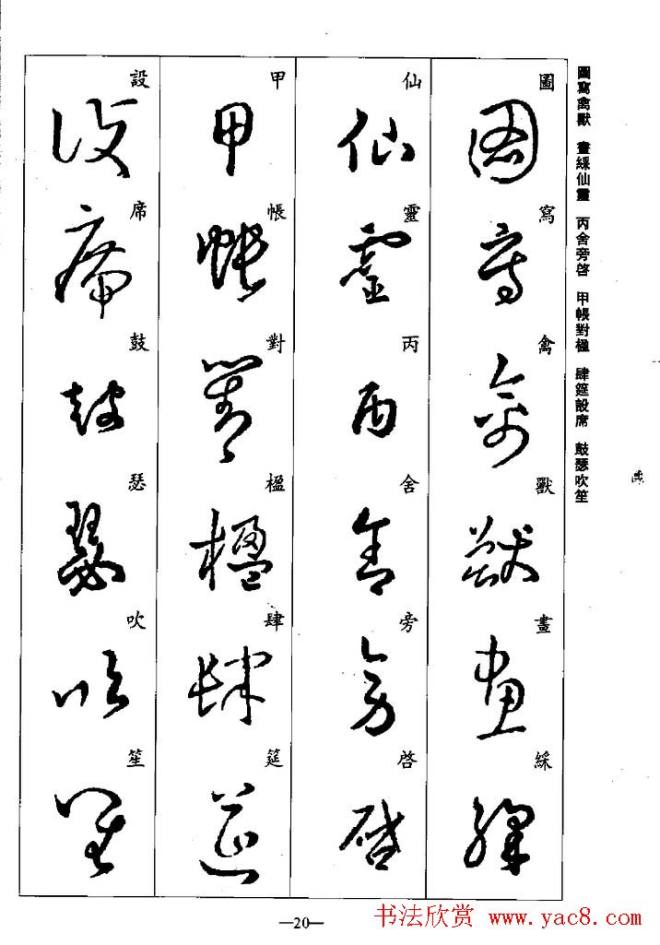 圖寫禽獸 畫綵仙靈 丙舍旁啓 甲帳對楹 肆筵設席 鼓瑟吹笙
圖寫禽獸畫綵
仙靈丙舍旁啓
甲帳對楹肆筵
設席鼓瑟吹笙
—20—
书法欣赏 www.yac8.com